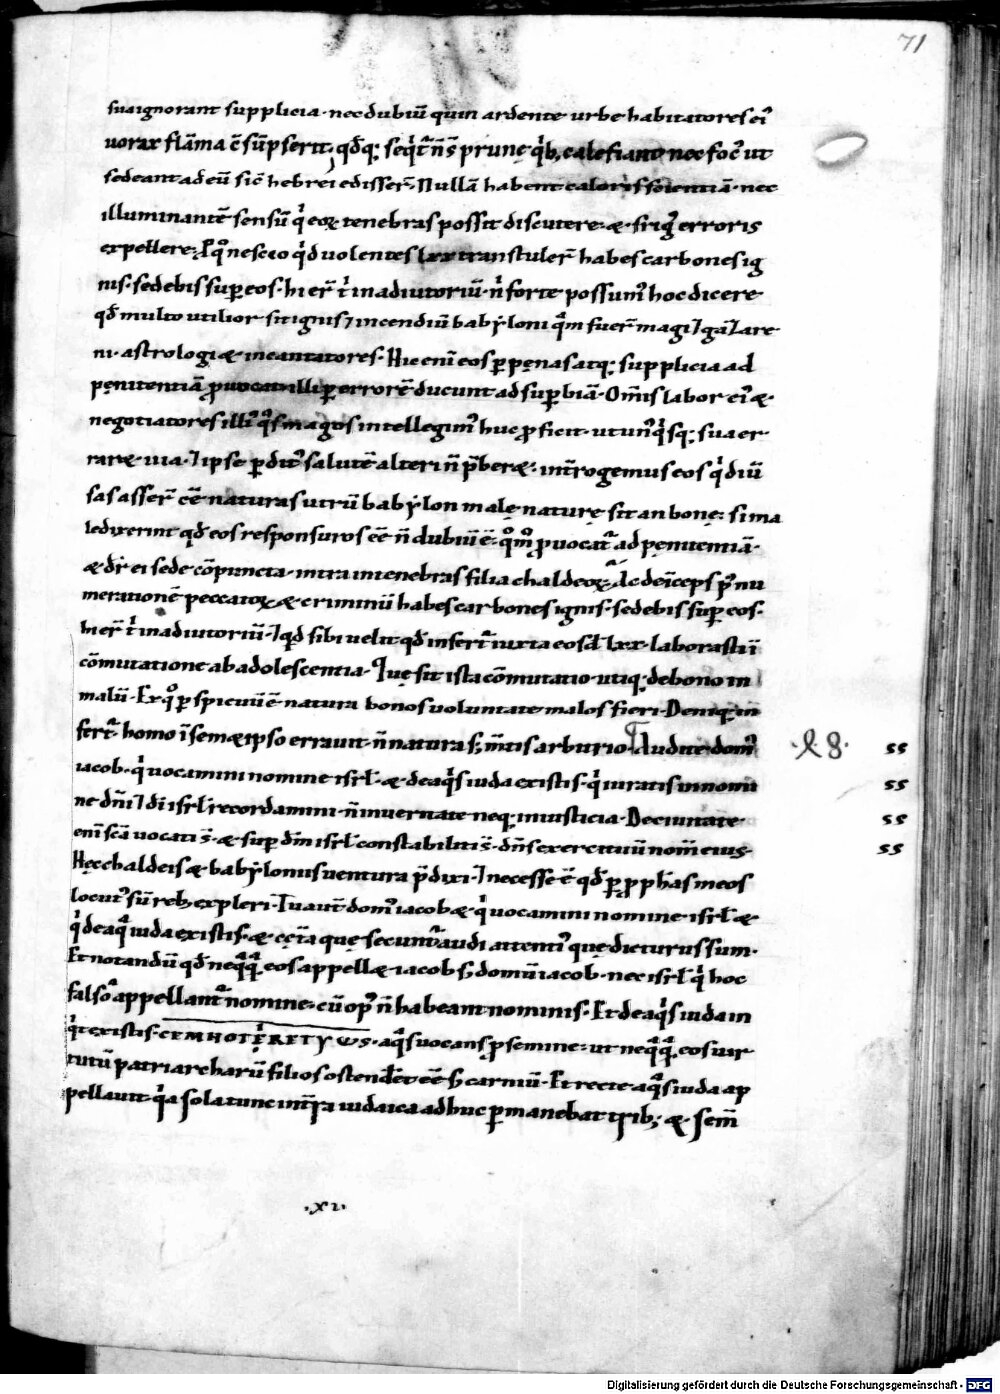 71
sua ignorant supplicia · nec dubiū quin ardente urbe habitatores ei᷒
uorax flāma c̄sūpserit,
sedeant ad eū sic̄ hebrei edisser̄. Nullā habent caloris scientiā · nec
illuminantē sensū qͥ eoꝝ tenebras possit discutere · & frig᷒ erroris
expellere; nescio qͥd uolentes lxx transtuler̄ habes carbones ig
nis · sedebis suꝑ eos · hi er̄ t̄ in adiutoriū · ñ forte possum᷒ hoc dicere
qd̄ multo utilior sit ignis ⁊ incendiū babẏloni qͣm fuer̄ magi ⁊ gaz̄are
ni · astrologi & incantatores · Hic eni eos ꝑ pęnas atq; supplicia ad
pęnitentiā ꝓuocat illi ꝑ errorē ducunt ad suꝑbiā · Om̄is labor ei᷒ &
negotiatores illi᷒ qͦs magos intellegim᷒ huc ꝓficit · ut un᷒qͥsq; sua er
rar& uia · ⁊ ipse ꝑdit᷒ salutē alteri n̄ p̄ber& · int̄rogemus eos qͥ diū
sas asser̄ c̄e naturas utrū babẏlon malę naturę sit an bonę; si ma
le dixerint qd̄ eos responsuros ēe n̄ dubiū ē · qͦm ꝓuocat᷒ ad pęnitentiā ·
& dr̄ ei sede cōpuncta · intra in tenebras filia chaldeoꝝ · Ac deīceps p᷒ nu
merationē peccatoꝝ & criminū habes carbones ignis · sedebis suꝑ eos ·
hi er̄ t̄ in adiutoriū · ⁊ qd̄ sibi uelit qd̄ infert᷒ iuxta eosd̄ lxx · laborasti ī
cōmutatione ab adolescentia · Quę sit ista cōmutatio · utiq; de bono in
malū · Ex qͦ ꝑspicuū ē natura bonos uoluntate malos fieri · Deniq; in
fert᷒ · homo ī sem&ipso errauit · n̄ natura s; m̄tis arbitrio · Audite dom᷒ ·l8· ss
iacob · qͥ uocamini nomine isrl̄ · & de aqͥs iuda existis · qͥ iuratis in nomi ss
ne dn̄i ⁊ dī isrl̄ recordamini · n̄ in ueritate neq; in iusticia · De ciuitate ss
eni sc̄a uocati s̄ · & suꝑ dm̄ isrl̄ constabiliti s̄ · dn̄s exercituū nom̄ eius · ss
Hęc chaldeis & babẏloniis uentura p̄dixi · ⁊ necesse ē qd̄ ꝑ pphas meos
locut᷒ sū reb; expleri · Tu aut̄ dom᷒ iacob & qͥ uocamini nomine · isrl̄ &
qͥ de aqͣ iuda existis · & cęt̄a quę secunt᷒ audi attenti᷒ quę dicturus sum ·
Et notandū qd̄ neqͣqͣ eos appell& iacob s; domū iacob · nec isrl̄ qͥ hoc
falso appellant᷒ nomine · cū op᷒ n̄ habeant nominis · Et de aqͥs iuda in
qͥt existis · aqͣs uocans ꝓ semine · ut neqͣqͣ eos uir
tutū patriarcharū filios ostender̄t ēe s; carniū · Et recte aqͣs iuda ap
pellauit · qͥa sola tunc int̄ra iudaica adhuc ꝑmanebat trib; & sem̄
·xv·
Digitalisierung gefördert durch die Deutsche Forschungsgemeinschaft - DFG